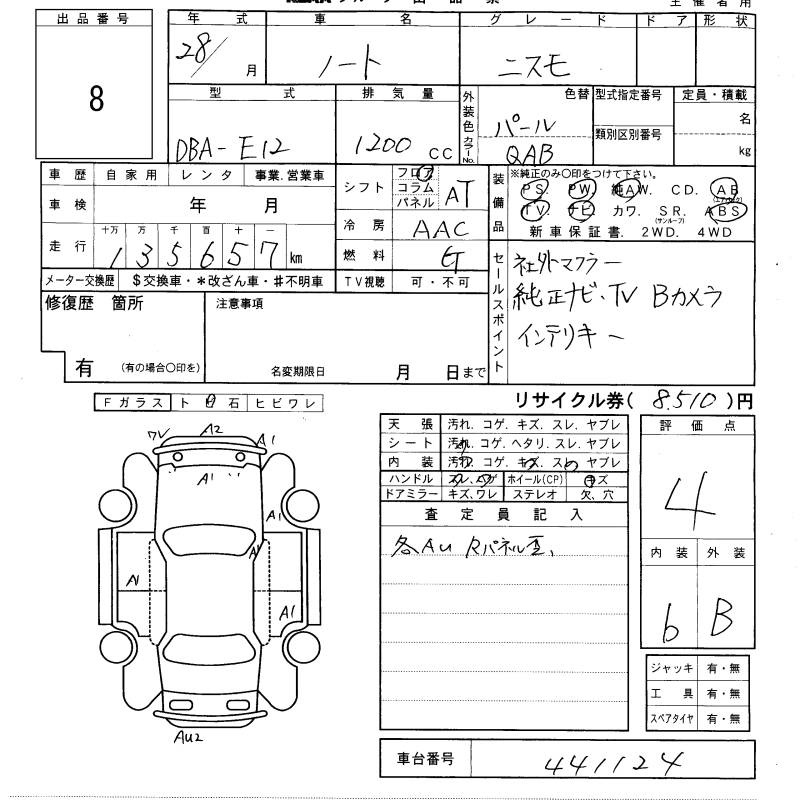 出品番号
8
年式
28/ 月
車名
ノート
グレード
ニスモ
ドア 形状
型式
DBA-E12
排気量
1200 CC
外装色 カラーNo.
色替
パール
QAB
型式指定番号
類別区別番号
定員・積載
名
kg
車歴 自家用 レンタ 事業.営業車
車検 年 月
走行 十万 万 千 百 十 一
135657 km
メーター交換歴 $交換車・*改ざん車・♯不明車
シフト フロア コラム パネル AT
冷房 AAC
燃料 G
TV視聴 可・不可
装備品
※純正のみ〇印をつけて下さい。
PS PW 純AW. CD. AB
(エアバック)
TV. ナビ カワ. SR. ABS
(サンルーフ)
新車保証書. 2WD. 4WD
セールスポイント
社外マフラー
純正ナビ・TV Bカメラ
インテリキー
修復歴 箇所
有 (有の場合〇印を)
注意事項
名変期限日 月 日まで
Fガラス トビ石 ヒビワレ
リサイクル券( 8.510 )円
ワレ A2 A1
A1
A1
A1
A1
A1
AU2
天張 汚れ. コゲ. キズ. スレ. ヤブレ
シート 汚れ. コゲ. ヘタリ. スレ. ヤブレ
内装 汚れ. コゲ. キズ. スレ. ヤブレ
ハンドル スレ. ハゲ ホイール(CP) キズ
ドアミラー キズ. ワレ ステレオ 欠. 穴
査定員記入
各AU Rパネル歪、
評価点
4
内装 外装
b B
ジャッキ 有・無
工具 有・無
スペアタイヤ 有・無
車台番号 441124